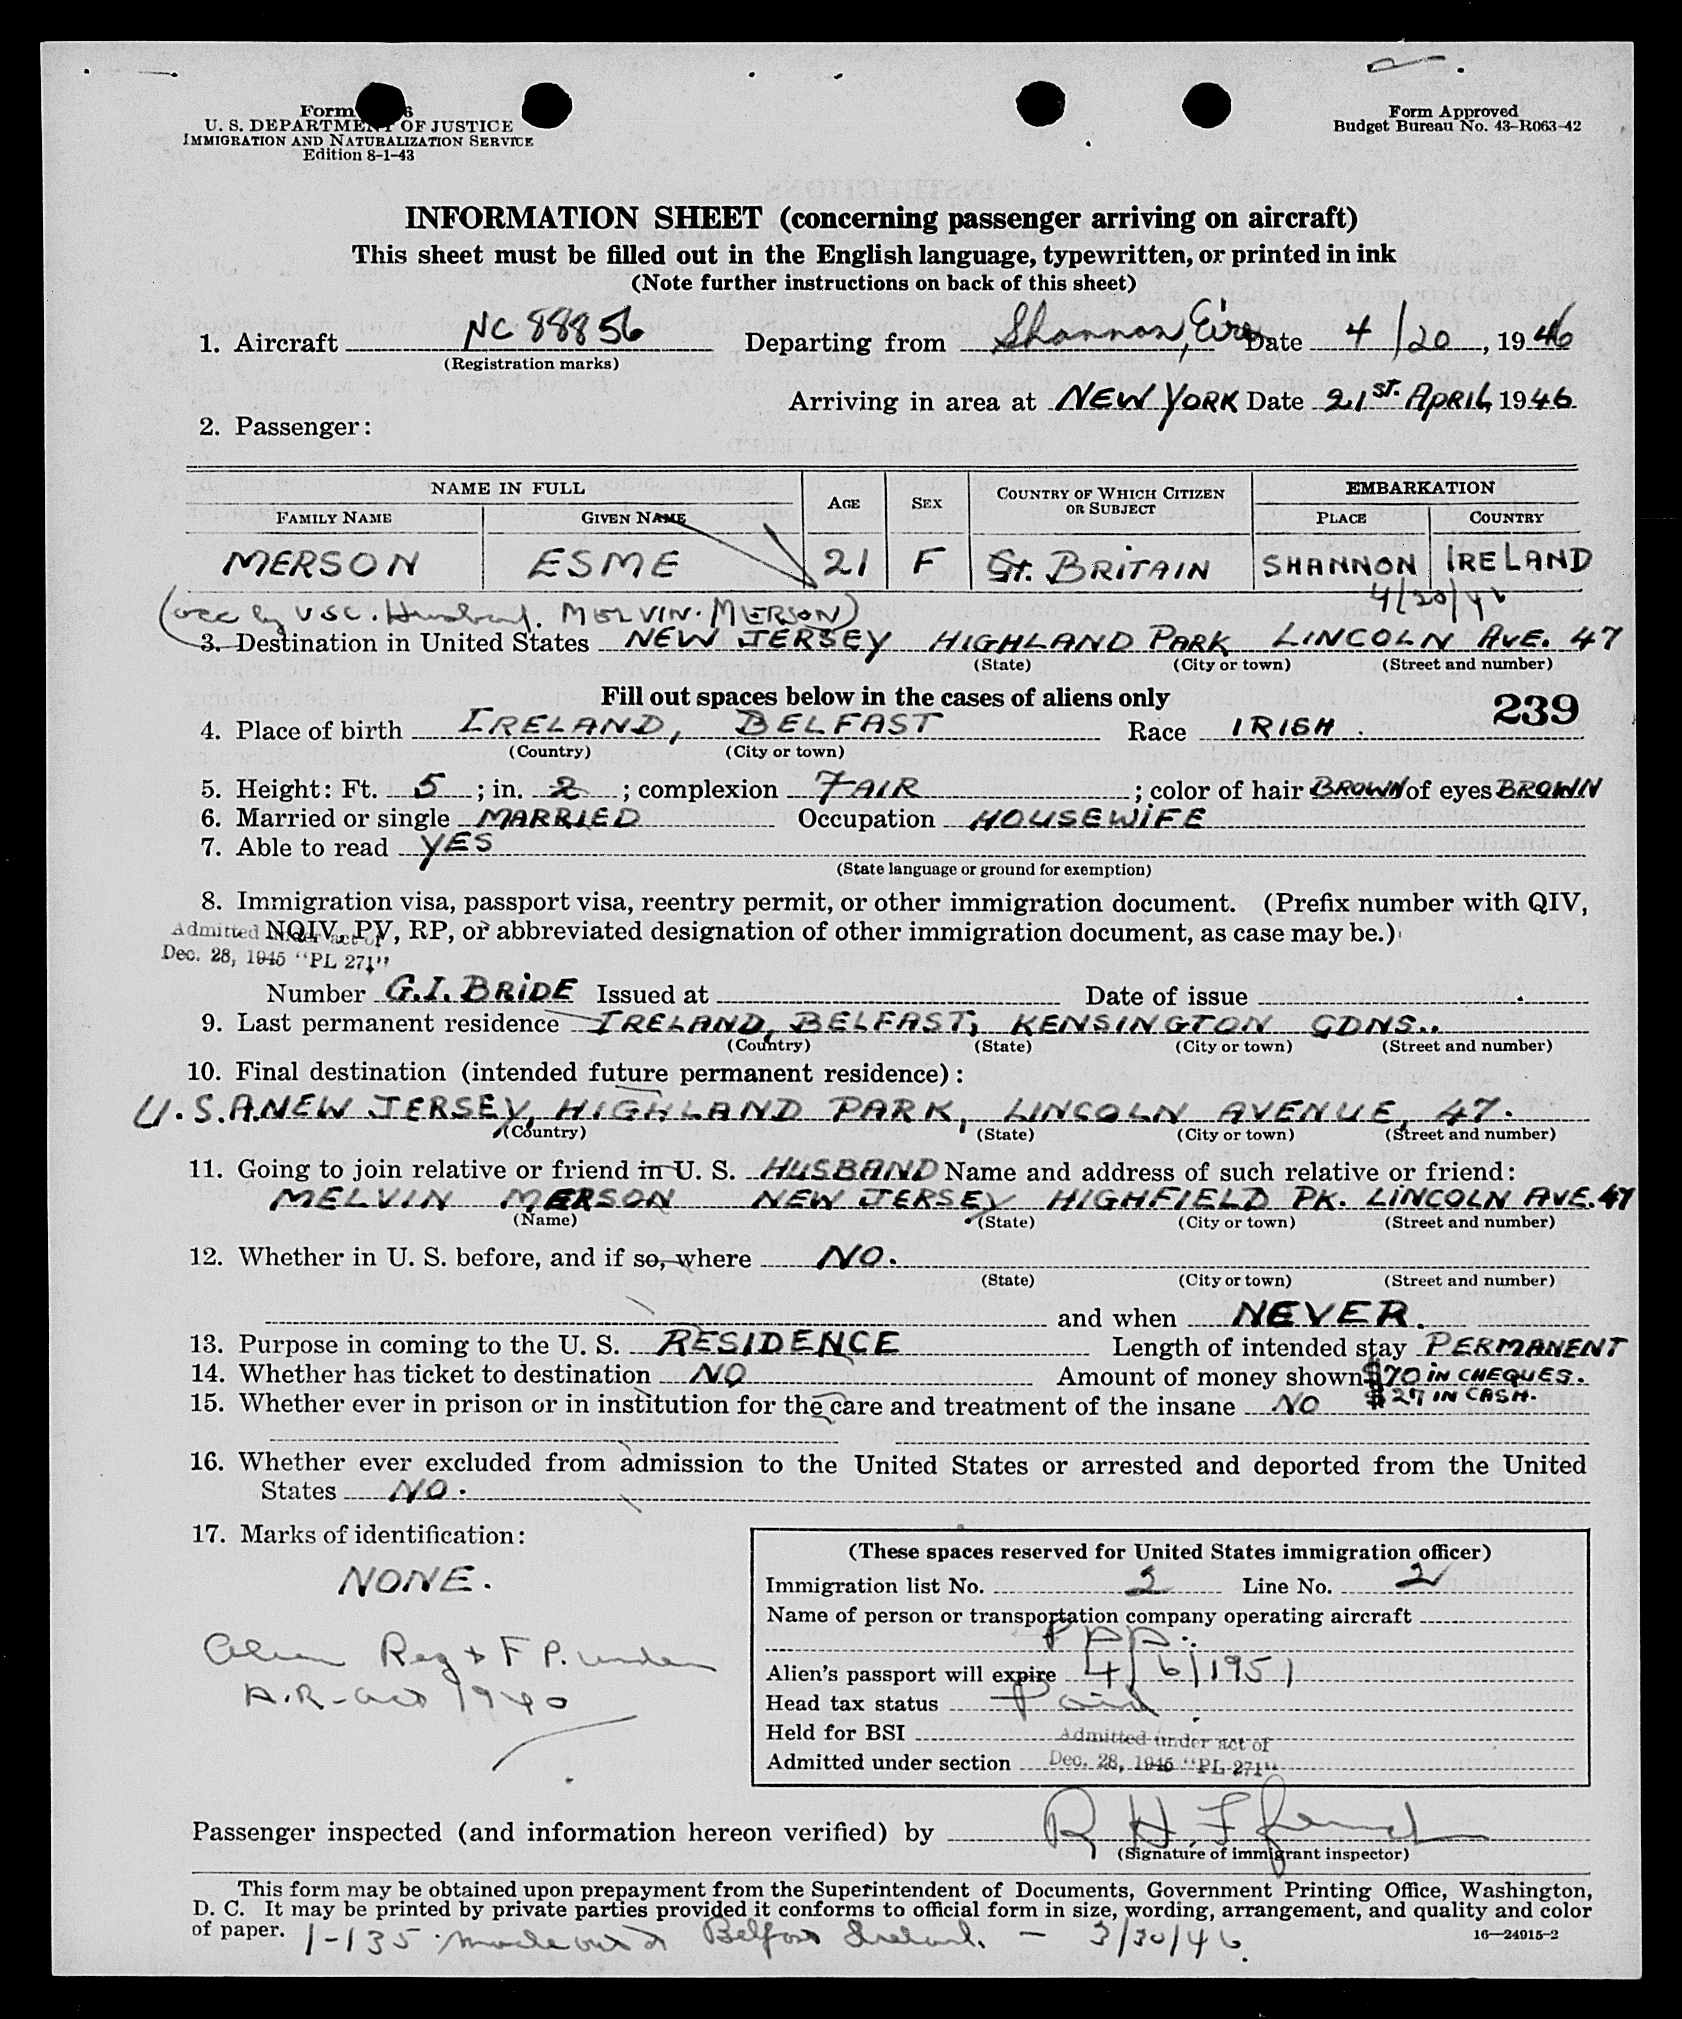 Form
U. S. DEPARTMENT OF JUSTICE
IMMIGRATION AND NATURALIZATION SERVICE
Edition 8-1-43
Form Approved
Budget Bureau No. 43-R063-42
INFORMATION SHEET (concerning passenger arriving on aircraft)
This sheet must be filled out in the English language, typewritten, or printed in ink
(Note further instructions on back of this sheet)
1. Aircraft NC 88856 Departing from Shannon, Eire Date 4/20, 1946
(Registration marks)
Arriving in area at NEW YORK Date 21ST. APRIL, 1946.
2. Passenger:
NAME IN FULL AGE SEX COUNTRY OF WHICH CITIZEN OR SUBJECT EMBARKATION
FAMILY NAME GIVEN NAME PLACE COUNTRY
MERSON ESME 21 F Gt. BRITAIN SHANNON IRELAND
4/20/46
(acc by USC. Husband. MELVIN. MERSON)
3. Destination in United States NEW JERSEY HIGHLAND PARK LINCOLN AVE. 47
(State) (City or town) (Street and number)
Fill out spaces below in the cases of aliens only 239
4. Place of birth IRELAND, BELFAST Race IRISH.
(Country) (City or town)
5. Height: Ft. 5; in. 2; complexion FAIR; color of hair BROWN of eyes BROWN
6. Married or single MARRIED Occupation HOUSEWIFE
7. Able to read YES
(State language or ground for exemption)
8. Immigration visa, passport visa, reentry permit, or other immigration document. (Prefix number with QIV,
NQIV, PV, RP, or abbreviated designation of other immigration document, as case may be.)
Admitted under act of
Dec. 28, 1945 "PL 271"
Number G.I. BRIDE Issued at Date of issue
9. Last permanent residence IRELAND, BELFAST, KENSINGTON GDNS..
(Country) (State) (City or town) (Street and number)
10. Final destination (intended future permanent residence):
U.S.A. NEW JERSEY, HIGHLAND PARK, LINCOLN AVENUE, 47.
(Country) (State) (City or town) (Street and number)
11. Going to join relative or friend in U. S. HUSBAND Name and address of such relative or friend:
MELVIN MERSON NEW JERSEY HIGHFIELD PK. LINCOLN AVE. 47
(Name) (State) (City or town) (Street and number)
12. Whether in U. S. before, and if so, where NO.
(State) (City or town) (Street and number)
and when NEVER.
13. Purpose in coming to the U. S. RESIDENCE Length of intended stay PERMANENT
14. Whether has ticket to destination NO Amount of money shown $70 IN CHEQUES.
$27 IN CASH.
15. Whether ever in prison or in institution for the care and treatment of the insane NO
16. Whether ever excluded from admission to the United States or arrested and deported from the United
States NO.
17. Marks of identification:
NONE.
Alien Reg & F P. under
A.R-act 1940
(These spaces reserved for United States immigration officer)
Immigration list No. 2 Line No. 2
Name of person or transportation company operating aircraft
PAA.
Alien's passport will expire 4/6/1951
Head tax status Paid
Held for BSI
Admitted under section Admitted under act of
Dec. 28, 1945 "PL 271"
Passenger inspected (and information hereon verified) by R H
(Signature of immigrant inspector)
This form may be obtained upon prepayment from the Superintendent of Documents, Government Printing Office, Washington,
D. C. It may be printed by private parties provided it conforms to official form in size, wording, arrangement, and quality and color
of paper.
I-135 made out at Belfast Ireland. - 3/30/46.
16—24915-2